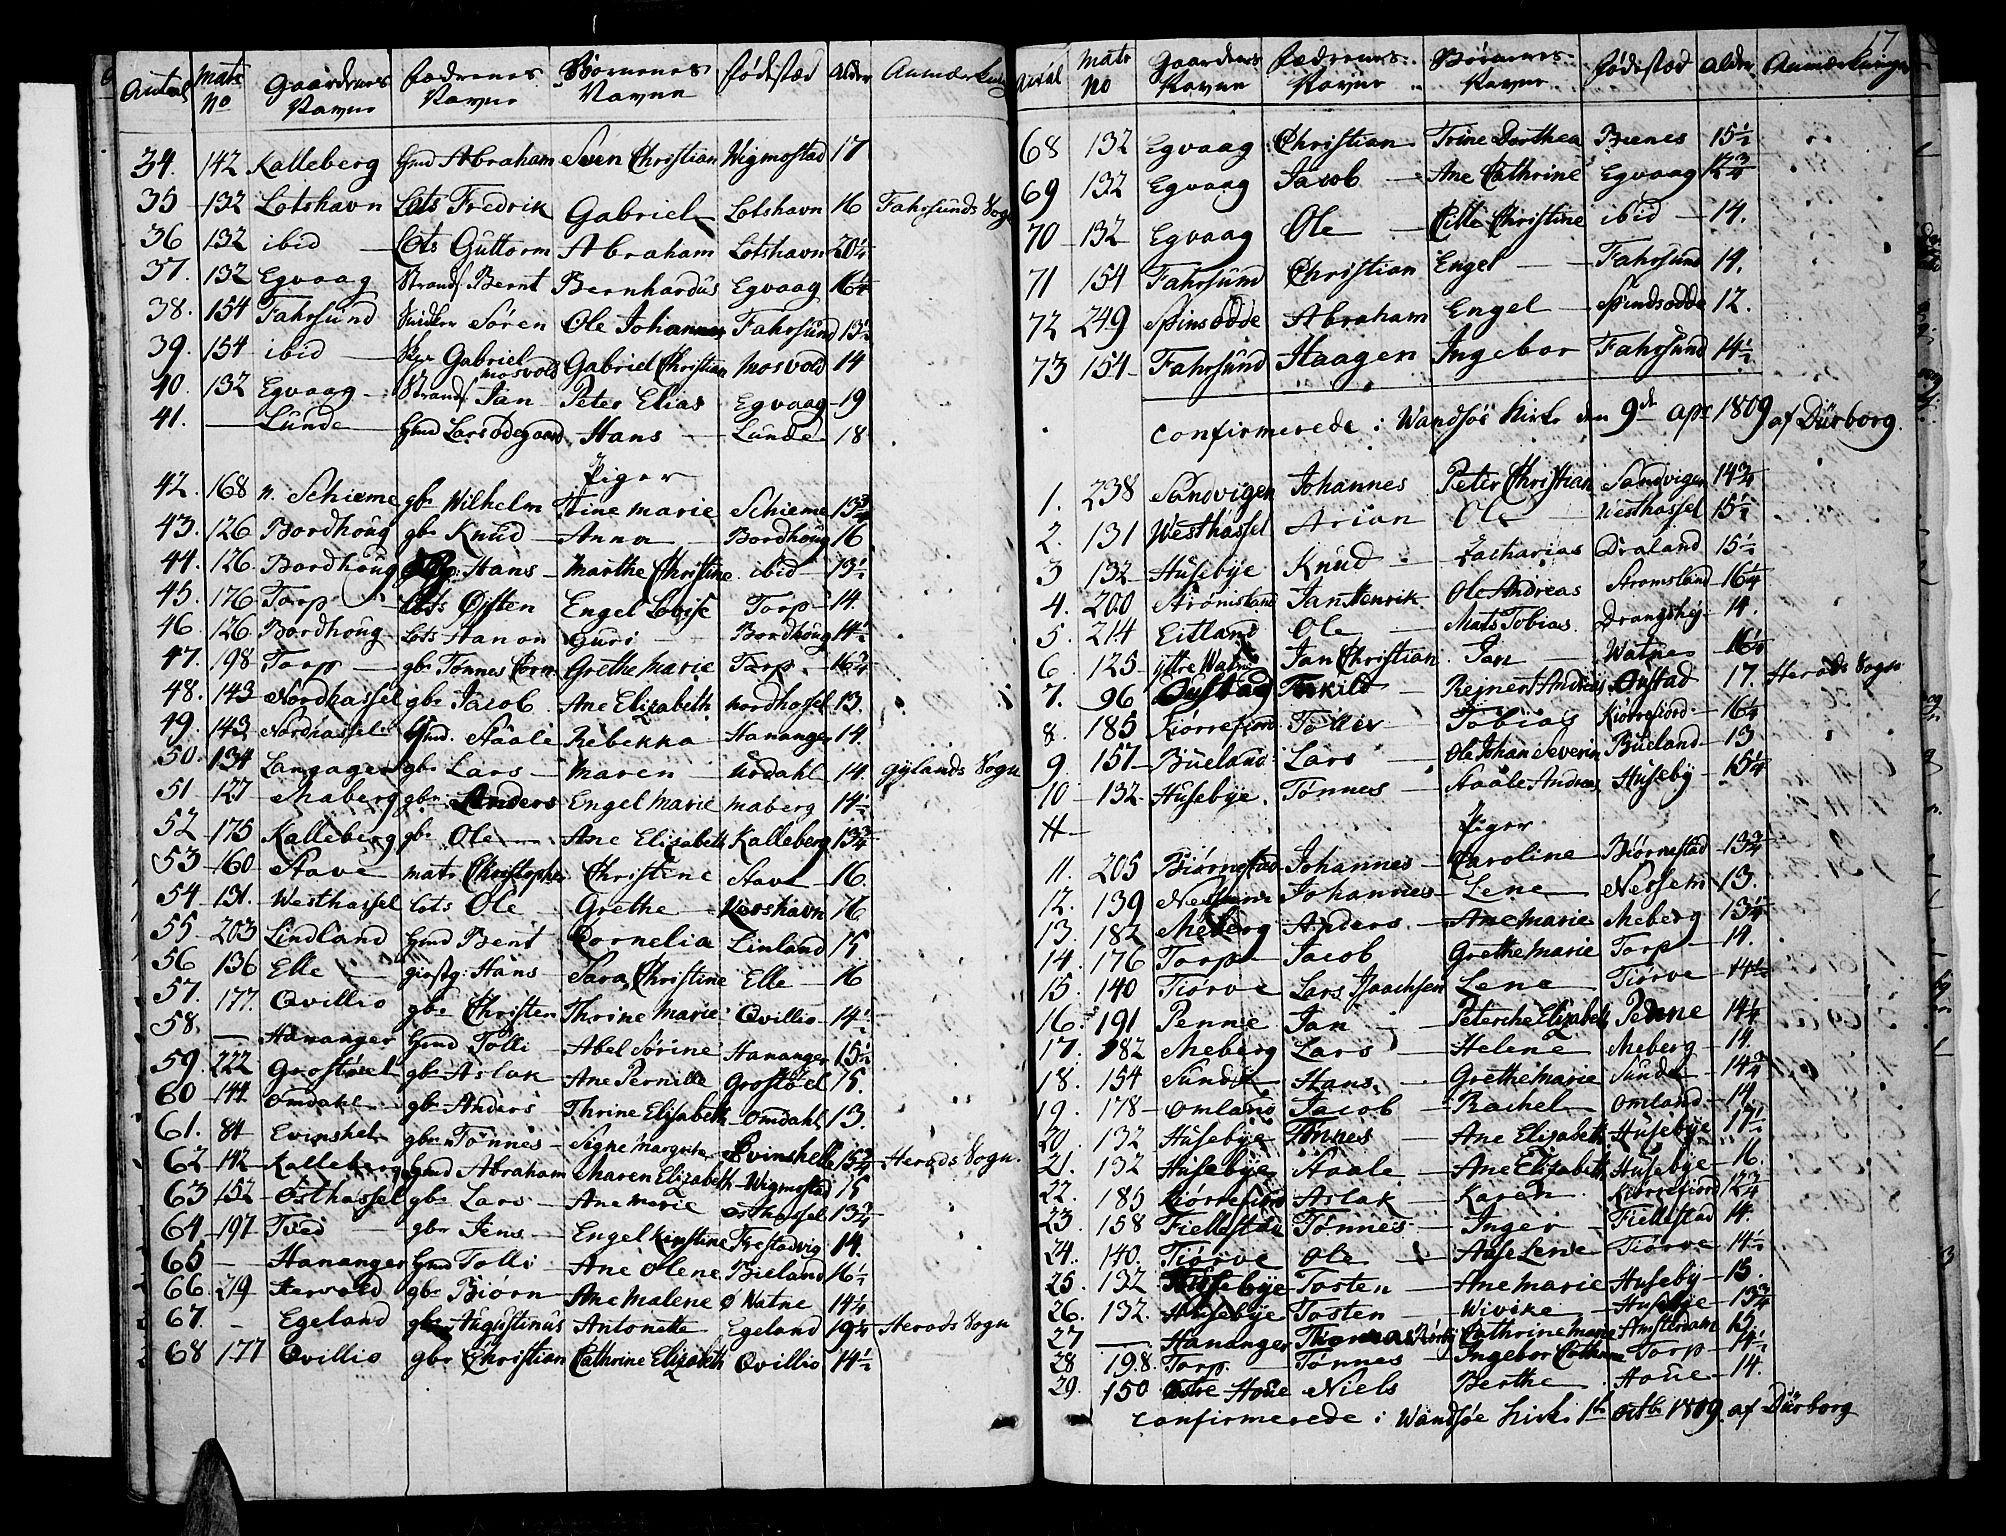 Antal Matr No Gaardenes Navne Fædrenes Navne Børnenes Navne Fødested Alder Anmærkning
34. 142 Kalleberg hmd Abraham Sven Christian Wigmostad 17
35 132 Lotshavn Lots Fredrik Gabriel Lotshavn 16 Fahrsunds Sogn
36 132 ibid Lots Guttorm Abraham Lotshavn 20¼
37. 132 Egvaag Strands Bernt Bernhardus Egvaag 16¼
38. 154 Fahrsund Snidker Søren Ole Johannes Fahrsund 15½
39. 154 ibid Gabriel Mosvold Gabriel Christian Mosvold 14
40. 132 Egvaag Strands Jan Peter Elias Egvaag 19
41. — Lunde hmd Lars Ødegaard Hans Lunde 18
Piger
42. 168 n. Schieme gbr Wilhelm Trine Marie Schieme 13¾
43. 126 Bordhoug gbr Knud Anna Bordhoug 16
44. 126 Bordhoug Hans Marthe Christine ibid 13½
45. 176 Torp Lots Øisten Engel Lovise Torp 14.
46. 126 Bordhoug Lots Hanon Guri Bordhoug 14½
47. 198 Torp gbr Tønnes Corn Grethe Marie Torp 16¾
48. 143 Nordhassel gbr Jacob Ane Elizabeth Nordhassel 13.
49. 143 Nordhassel hmd. Staale Rebekka Hananger 14.
50. 134 Langager gbr Lars Maren Urdahl 14. Gylands Sogn
51 127 Maberg gbr Anders Engel Marie Maberg 14½
52 175 Kalleberg gbr Ole Ane Elizabeth Kalleberg 13¾
53 160 Stave matr Christopher Christine Stave 16.
54 131. Westhassel Lots Ole Grethe 16
55. 203 Lindland hmd Bent Cornelia Linland 15
56 136 Elle Hans Sara Christine Elle 16
57. 177. Qvillio gbr Christen Thrine Marie Qvillio 14½
58. — Hananger hmd Tolli Abel Sørine Hananger 15½
59. 222 Grostøel gbr Aslak Ane Pernille Grostøel 15.
60 144 Omdahl gbr Anders Thrine Elizabeth Omdahl 13.
61. 84 Evinshel gbr Tønnes Signe Margrethe Evinshelle 15¾ Herads Sogn.
62 142 Kalleberg hmd Abraham Maren Elizabeth Wigmostad 15
63 152 Østhassel gbr Lars Ane Marie Østhassel 13¾
64. 197 Tved gbr Jens Engel Kirstine Frestadvig 14.
65 — Hananger hmd Tolli Ane Olene Bieland 16½
66 219 Hervold gbr Biørn Ane Malene Ø Watne 14¼
67. — Egeland gbr Augustinus Antonette Egeland 19¼ Herads Sogn
68 177 Qvillio gbr Christian Cathrine Elizabeth Qvillio 14½
17
Antal Matr No Gaardenes Navne Fædrenes Navne Børnenes Navne Fødested Alder Anmærkninger
68 132 Egvaag Christian Trine Dorthea Beenes 15½
69 132 Egvaag Jacob Ane Cathrine Egvaag 12¾
70 132 Egvaag Ole Cille Christine ibid 14.
71 154 Fahrsund Christian Engel Fahrsund 14.
72 249 Spinsodde Abraham Engel Spindsodde 12.
73 154 Fahrsund Haagen Ingebor Fahrsund 14½
Confirmerede i Wandsøe Kirke den 9de Apr 1809 af Dürborg.
1. 238 Sandvigen Johannes Peter Christian Sandvigen 14¾
2. 131 Westhassel Arian Ole Westhassel 15½
3 132 Husebye Knud Zacharias Draland 15½
4. 200 Strømsland Jan Henrik Ole Andreas Stromsland 16¼
5. 214 Eitland Ole Mats Tobias Drangshej 14.
6. 125 yttre Watne Jan Christian Jan Watne 16½
7. 96 Oustad Terkild Rejnert Andreas Oustad 17. Herads Sogn
8. 185 Kiørrefiord Tollev Tobias Kiørrefiord 16¼
9 157 Büeland Lars Ole Johan Severin Büeland 13
10 132 Husebye. Tønnes Staale Andreas Huseby 15¼
Piger
11. 205 Biørnestad Johannes Caroline Biørnestad 13¾
12. 139 Nessem Johannes Lene Nessem 13.
13. 182 Meberg Anders Ane Marie Meberg 13¼
14. 176 Torp Jacob Grethe Marie Torp 14.
15. 140 Tiørve Lars Isaachsen Lene Tiørve 14½
16. 191 Penne Jan Petersche Elizabeth Penne 14¼
17. 182 Meberg Lars Helene Meberg 14.
18. 154 Sunde Hans Grethe Marie Sunde 14¾
19. 178 Omland Jacob Rachel Omland 14.
20. 132 Husebye Tønnes Ane Elizabeth Husebye 17½
21. 132 Husebye Staale Ane Elizabeth Husebye 16.
22. 185 Kiørrefiord Aslak Karen Kiørrefiord 12¾
23. 158 Fiellestad Tønnes Inger Fiellestad 14.
24. 140. Tiørve Ole Aase Lene Tiørve 14½
25. 132 Husebye Tosten Ane Marie Huseby 15
26. 132. Husebye Tosten Wivike Husebye 13¾
27 — Hananger Thomas Cathrine Marie Amsterdam 15.
28 198. Torp. Tønnes Ingebor Cathrine Torp 14½
29. 150 Østre Hoüe Niels Berthe Hoüe 14.
Confirmerede i Wandsøe Kirke 1te Octbr 1809 af Dürborg